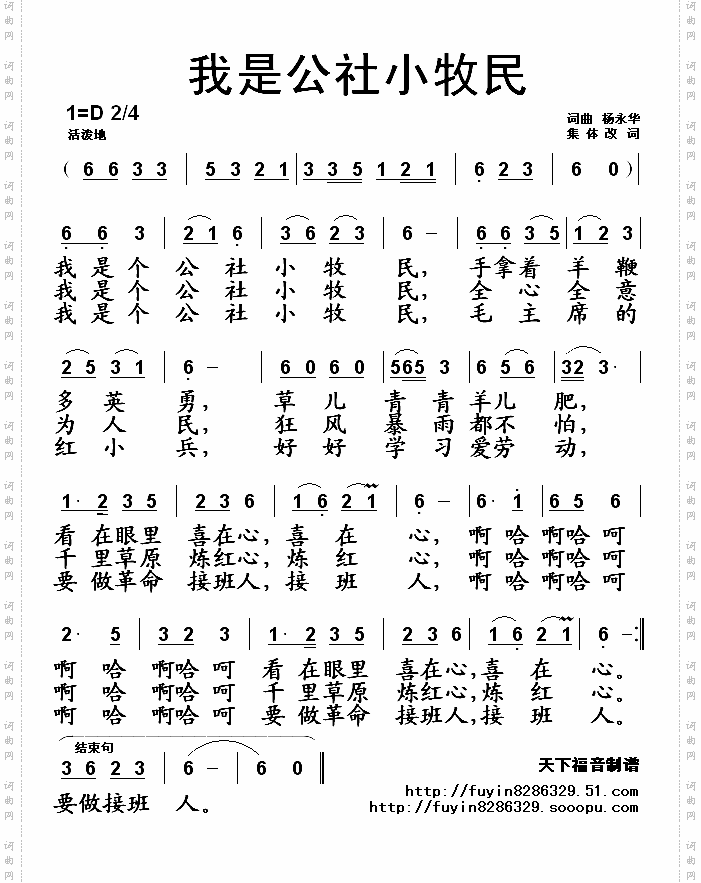 我是公社小牧民
1=D 2/4
词曲 杨永华
活泼地
集体改词
( 6 6 3 3 | 5 3 2 1 | 3 3 5 1 2 1 | 6 2 3 | 6 0 ) |
6 6 3 | 2 1 6 | 3 6 2 3 | 6 – | 6 6 3 5 | 1 2 3
我是个 公社 小牧 民, 手拿着 羊鞭
我是个 公社 小牧 民, 全心全意
我是个 公社 小牧 民, 毛主席的
2 5 3 1 | 6 – | 6 0 6 0 | 565 3 | 6 5 6 | 32 3·
多英 勇, 草儿 青青 羊儿 肥,
为人 民, 狂风 暴雨 都不 怕,
红小 兵, 好好 学习 爱劳 动,
1· 2 3 5 | 2 3 6 | 1 6 2 1 | 6 – | 6· 1 | 6 5 6
看在眼里 喜在心, 喜在 心, 啊哈 啊哈呵
千里草原 炼红心, 炼红 心, 啊哈 啊哈呵
要做革命 接班人, 接班 人, 啊哈 啊哈呵
2· 5 | 3 2 3 | 1· 2 3 5 | 2 3 6 | 1 6 2 1 | 6 – :||
啊哈 啊哈呵 看在眼里 喜在心, 喜在 心。
啊哈 啊哈呵 千里草原 炼红心, 炼红 心。
啊哈 啊哈呵 要做革命 接班人, 接班 人。
结束句
3 6 2 3 | 6 – | 6 0 ||
天下福音制谱
http://fuyin8286329.51.com
要做接班 人。
http://fuyin8286329.sooopu.com
词曲网